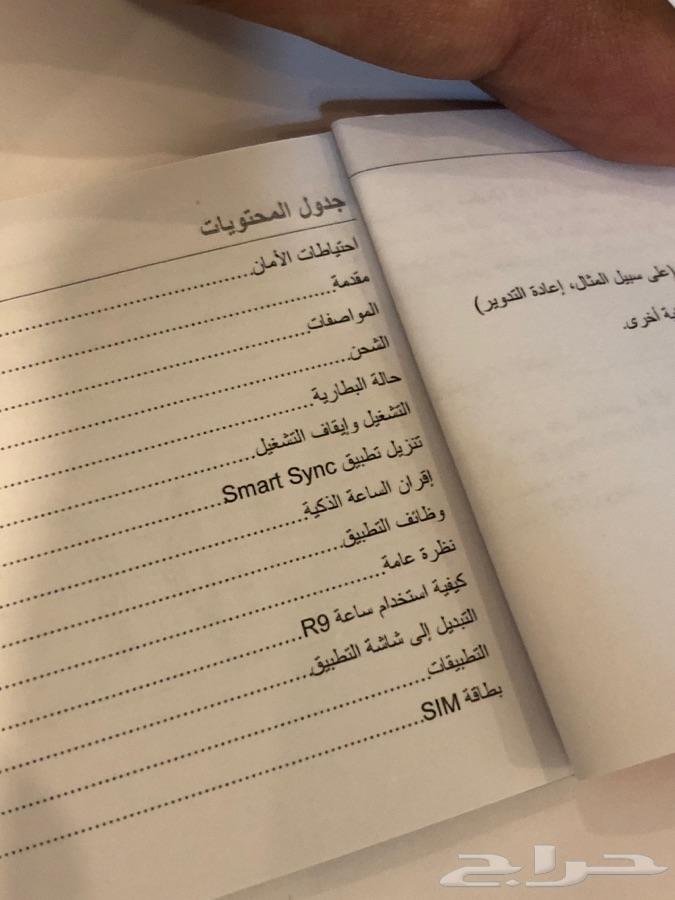 (على سبيل المثال، إعادة التدوير)
أخرى.
جدول المحتويات
احتياطات الأمان
مقدمة
المواصفات
الشحن
حالة البطارية
التشغيل وإيقاف التشغيل
تنزيل تطبيق Smart Sync
إقران الساعة الذكية
وظائف التطبيق
نظرة عامة
كيفية استخدام ساعة R9
التبديل إلى شاشة التطبيق
التطبيقات
بطاقة SIM
حراج